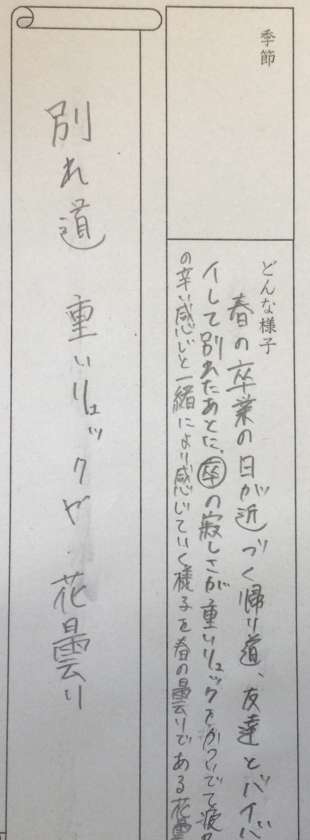 季節
どんな様子
春の卒業の日が近づく帰り道、友達とバイバ
イして別れたあとに、卒の寂しさが重いリュックをかついでて疲れ
の辛い感じと一緒により感じていく様子を春の曇りである花曇
別れ道 重いリュックや 花曇り